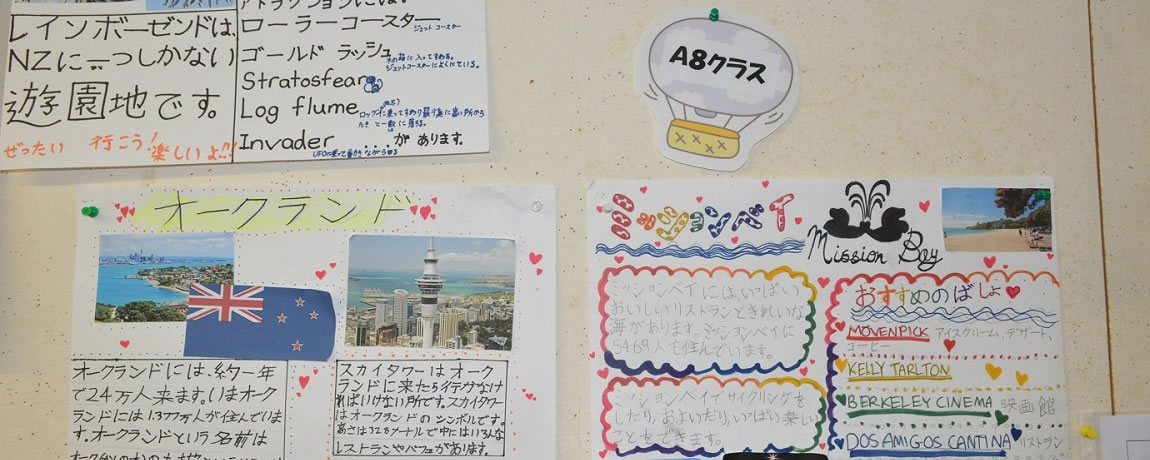 アトラクションには、
レインボーゼンドは、
NZに一つしかない
遊園地です。
ぜったい 行こう! 楽しいよ..!!
ローラーコースター ジェットコースター
ゴールド ラッシュ
Stratosfear
Log flume
Invader ...が あります。
A8クラス
オークランド
オークランドには、約一年
で24万人来ます。いまオーク
ランドには1.377万人が住んでいま
す。オークランドという名前は
スカイタワーは オーク
ランドに来たら行かなけ
ればいけない所です。スカイタワー
はオークランドのシンボルです。
高さは328メートルで中にはいろんな
レストランやパフェがあります。
ミッションベイ
Mission Bay
ミッションベイには、いっぱい
おいしいレストランときれいな
海があります。ミッションベイに
5469人も住んでいます。
ミッションベイでサイクリングを
したり、およいだり、いっぱい楽しい
ことをできます。
おすすめのばしょ
MÖVENPICK アイスクリーム、デザート、
コーヒー
KELLY TARLTON
BERKELEY CINEMA 映画館
DOS AMIGOS CANTINA レストラン